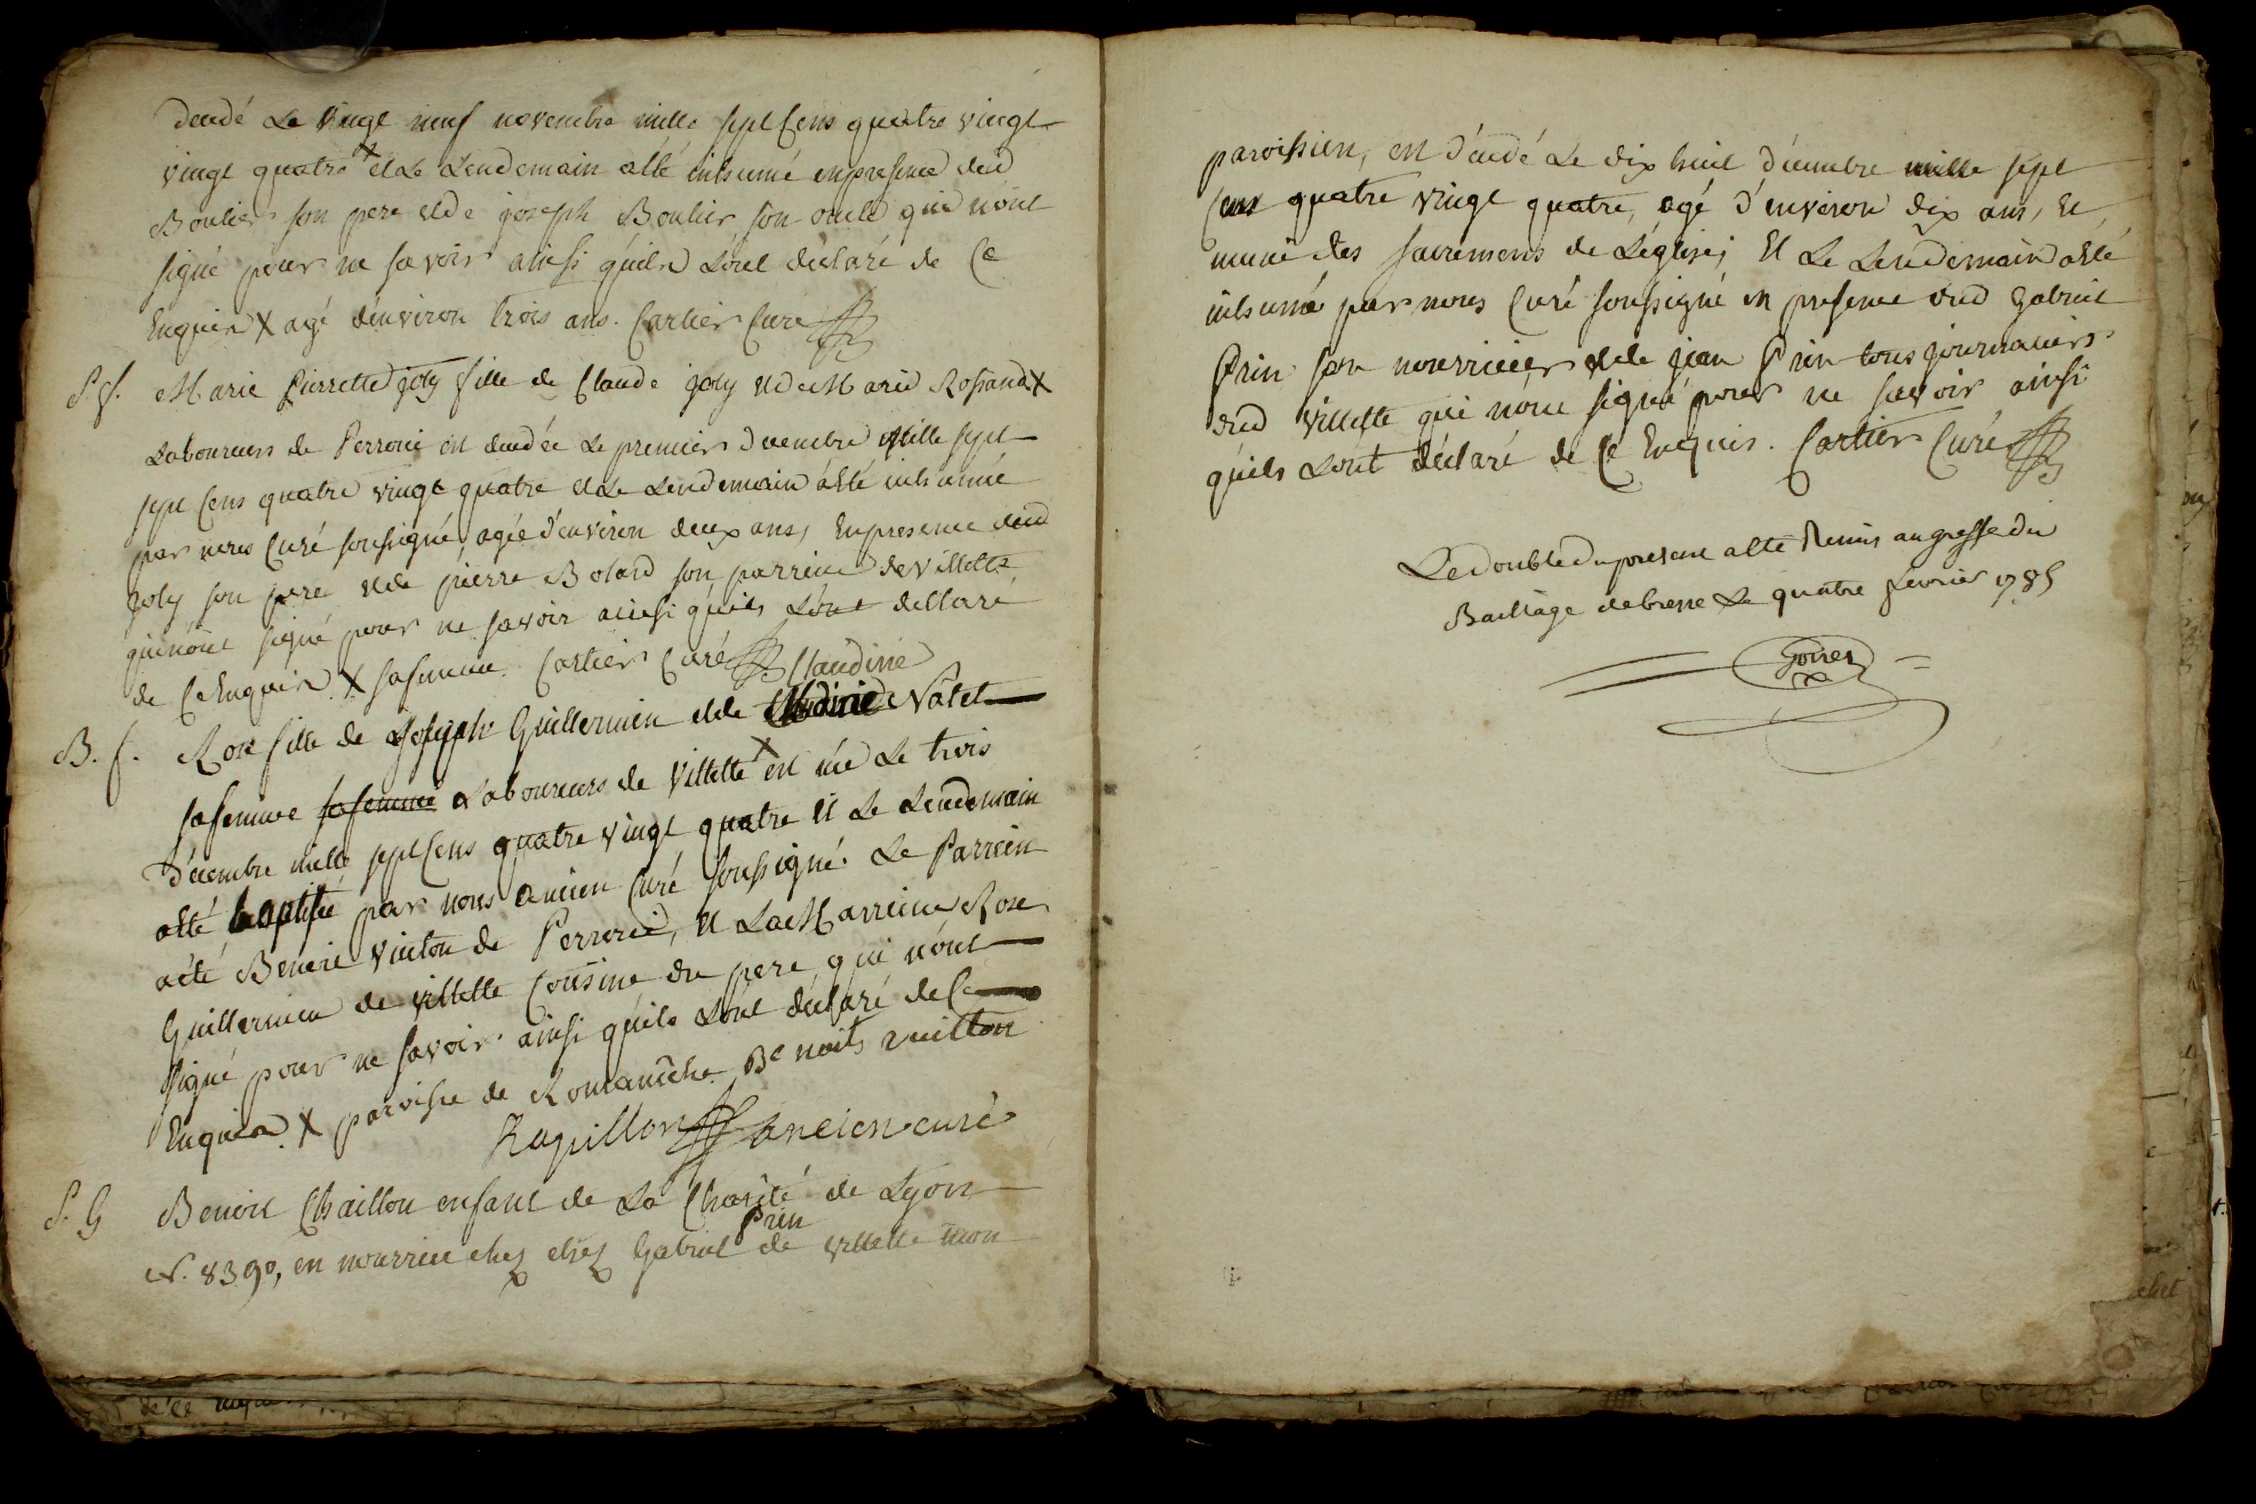 décédé Le vingt neuf novembre mille sept Cens quatre vingt
vingt quatre X et Le Lendemain a êté inhumé en presence dud
Boulier son pere et de joseph Boulier son oncle qui n'ont
signé pour ne savoir ainsi qu'ils L'ont déclaré de Ce
Enquis X agé d'environ trois ans. Cartier Curé
S. f. Marie Pierrette joly fille de Claude joly et de Marie Rossand X
Laboureurs de Perroux est décédée Le premier decembre Mille sept
sept Cens quatre vingt quatre et Le Lendemain a êté inhumée
par nous Curé soussigné, agée d'environ deux ans, En presence dud
joly son pere et de pierre Bolard son parrein de villette
qui n'ont signé pour ne savoir ainsi qu'ils L'ont dellaré
de Ce Enquis. X sa femme. Cartier Curé
Claudine
B. f. Rose fille de Joseph Guillermin et de Claudine Vâlet
sa femme sa femme Laboureurs de villette X est née Le trois
décembre mille sept Cens quatre vingt quatre et Le Lendemain
a êté baptisée par nous ancien Curé soussigné. Le Parrein
a été Benoit Vuiton de Perroux, et La Marreine Rose
Guillermin de villette Cousine du pere qui n'ont
signé pour ne savoir ainsi qu'ils L'ont déclaré de Ce
Enquis. X paroisse de Romanêche Benoits vuilton
Rapillon ancien curé
S. G Benoit Chaillon enfant de La Charité de Lyon
Prin
N. 8390, en nourrice chez chez Gabriel de villette mon
paroissien, est décédé Le dix huit décembre mille sept
Cens quatre vingt quatre, agé d'environ dix ans, et
muni des sacremens de L'église; et Le Lendemain a êté
inhumé par nous Curé soussigné en presence dud Gabriel
Prin son nourricier et de jean Prin tous journaliers
dud villette qui n'ont signé pour ne savoir ainsi
qu'ils L'ont déclaré de Ce Enquis. Cartier Curé
Le double du present a êté Remis au greffe du
Bailliage de bresse Le quatre fevrier 1785
Goiret